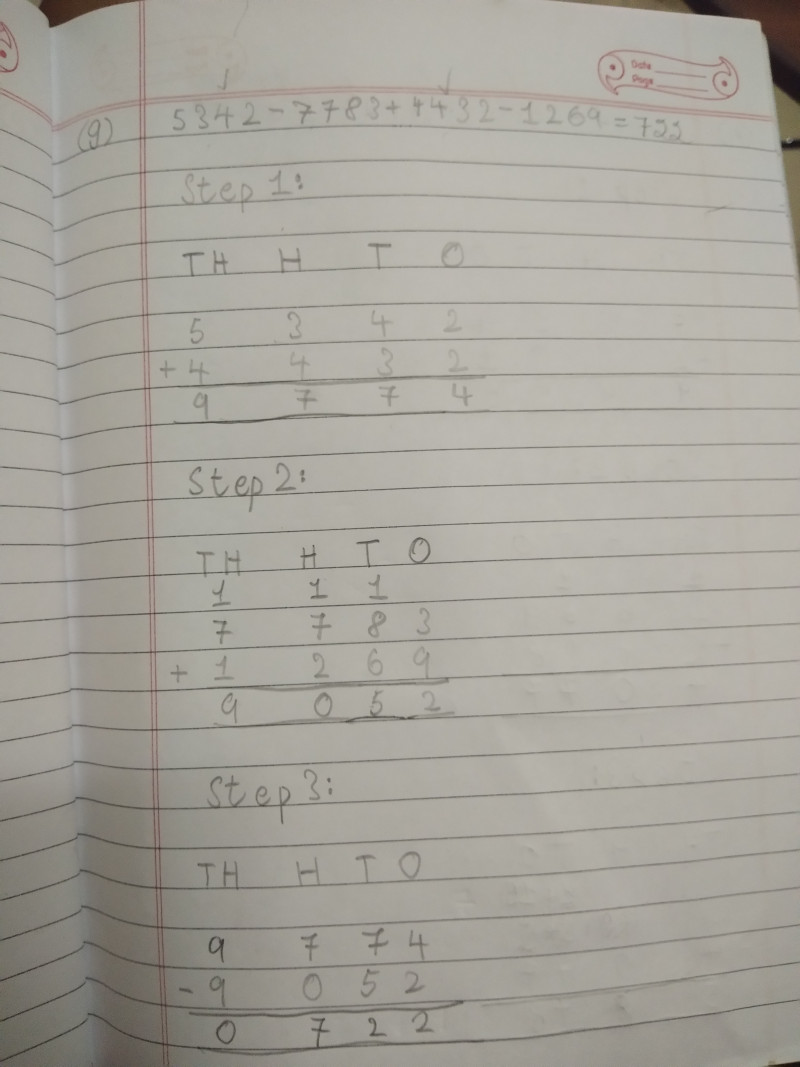 Date
Page
(9) 5342-7783+4432-1269=722
Step 1:
TH H T O
5 3 4 2
+ 4 4 3 2
9 7 7 4
Step 2:
TH H T O
1 1 1
7 7 8 3
+ 1 2 6 9
9 0 5 2
Step 3:
TH H T O
9 7 7 4
- 9 0 5 2
0 7 2 2